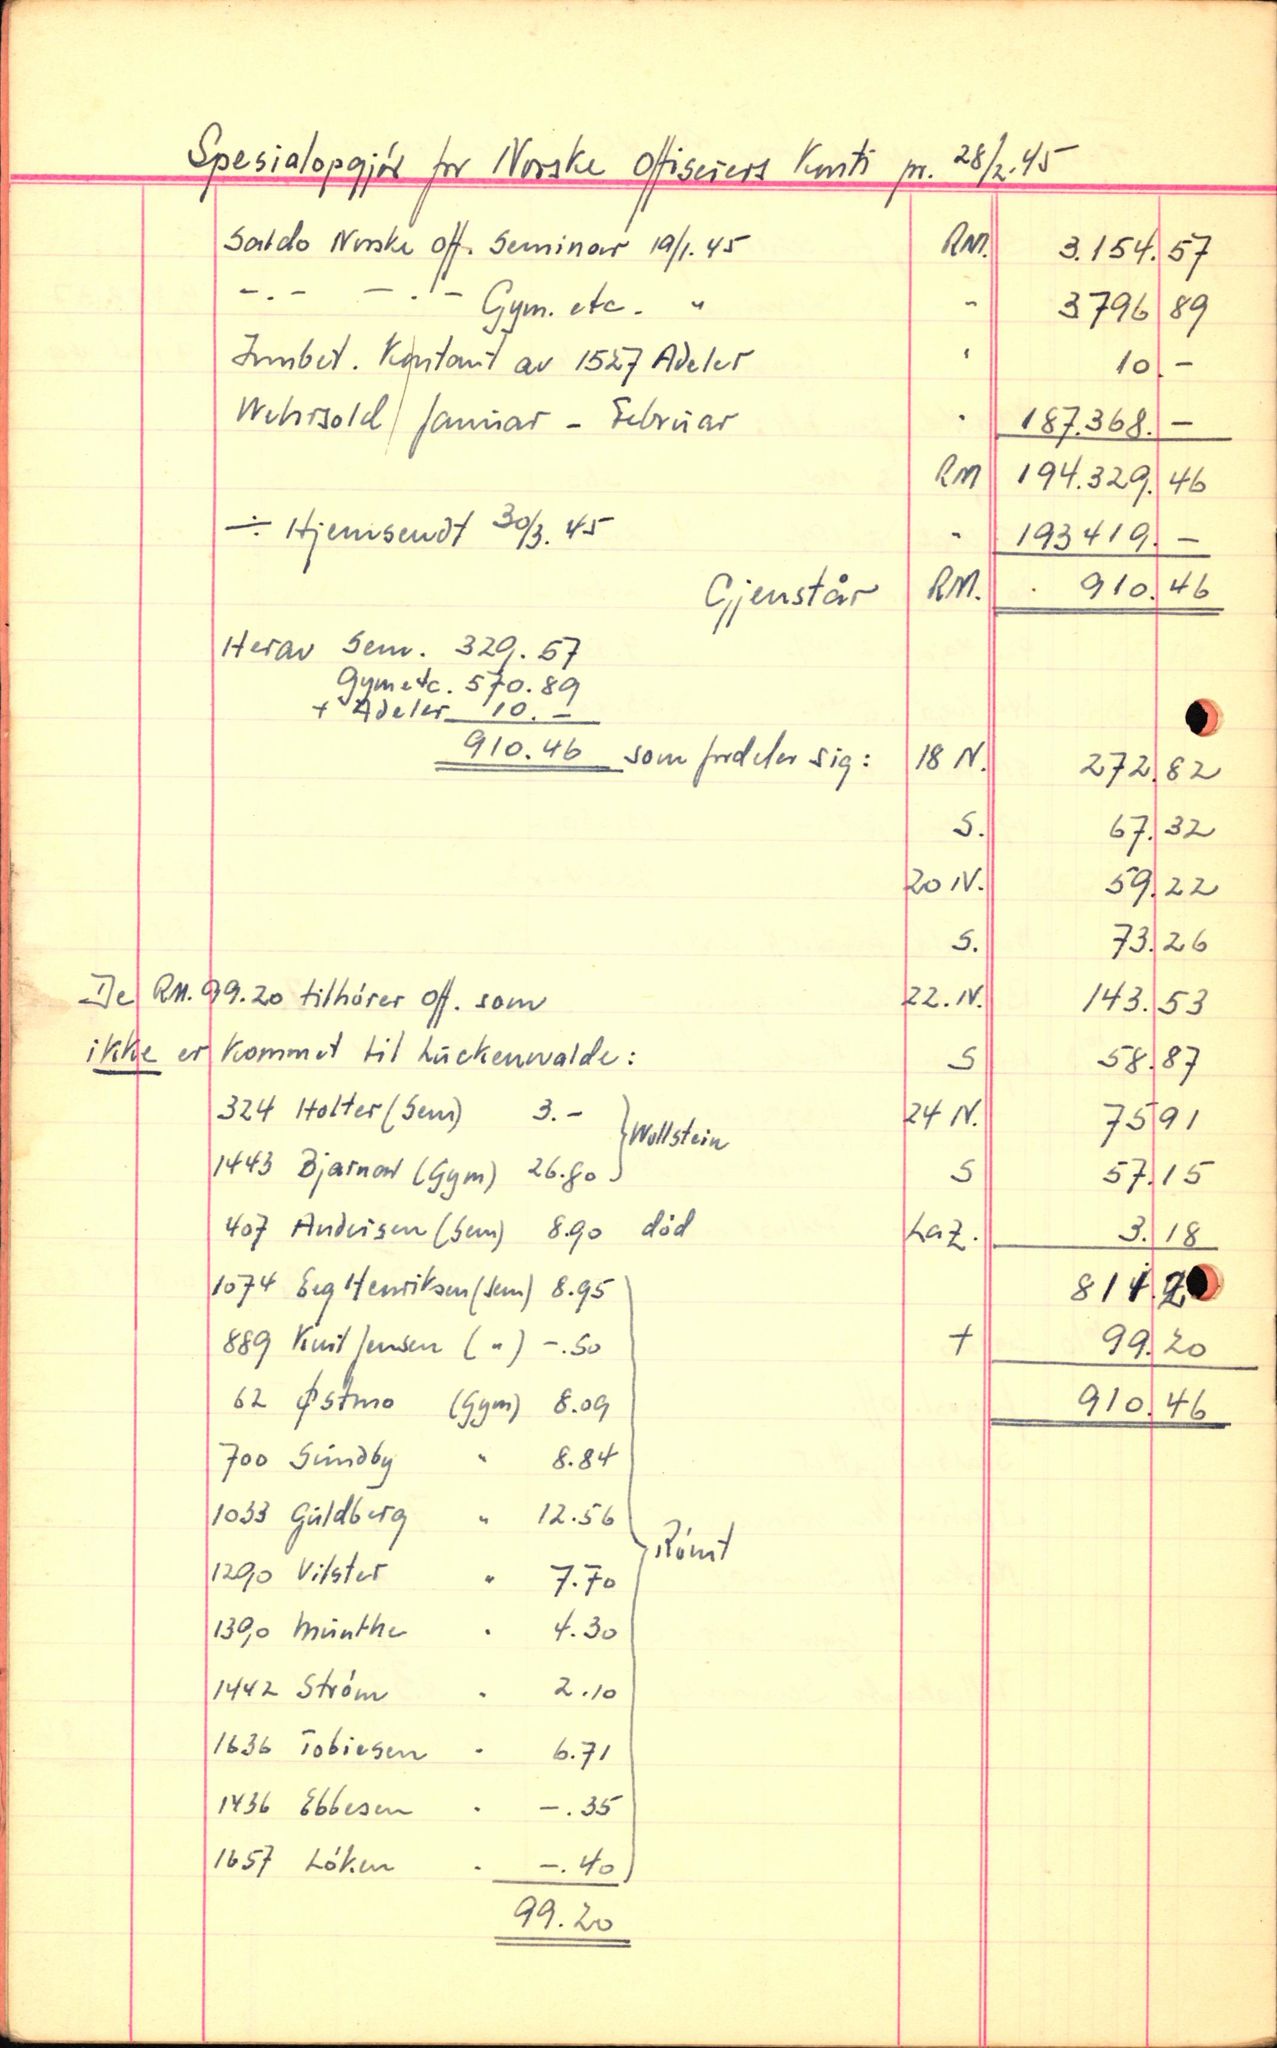 Spesialopgjör for Norske Offiserers Konti pr. 28/2.45
Saldo Norske off. Seminar 19/1.45 RM. 3.154.57
-.- -.- Gym. etc. " " 3796 89
Innbet. Kontant av 1527 Adeler " 10.-
Wehrsold Januar - Februar " 187.368.-
RM 194.329.46
÷ Hjemsendt 30/3.45 " 193419.-
Gjenstår RM. 910.46
Herav Sem. 329.57
Gym etc. 570.89
+ Adeler 10.-
910.46 som fordeler sig: 18 N. 272.82
S. 67.32
20 N. 59.22
S. 73.26
De RM. 99.20 tilhörer off. som 22. N. 143.53
ikke er kommet til Luckenwalde: S 58.87
324 Holter (Sem) 3.- 24 N. 75 91
Wollstein
1443 Bjarnar (Gym) 26.80 S 57.15
407 Andersen (Sem) 8.90 död Laz. 3.18
1074 Eeg Henriksen (Sem) 8.95 811.2
889 Knut Jensen ( " ) -.50 + 99.20
62 Østmo (Gym) 8.09 910.46
700 Sundby " 8.84
1033 Guldberg " 12.56
Römt
1290 Vilster " 7.70
1390 Munthe " 4.30
1442 Ström " 2.10
1636 Tobiesen " 6.71
1436 Ebbesen " -.35
1657 Löken " -.40
99.20